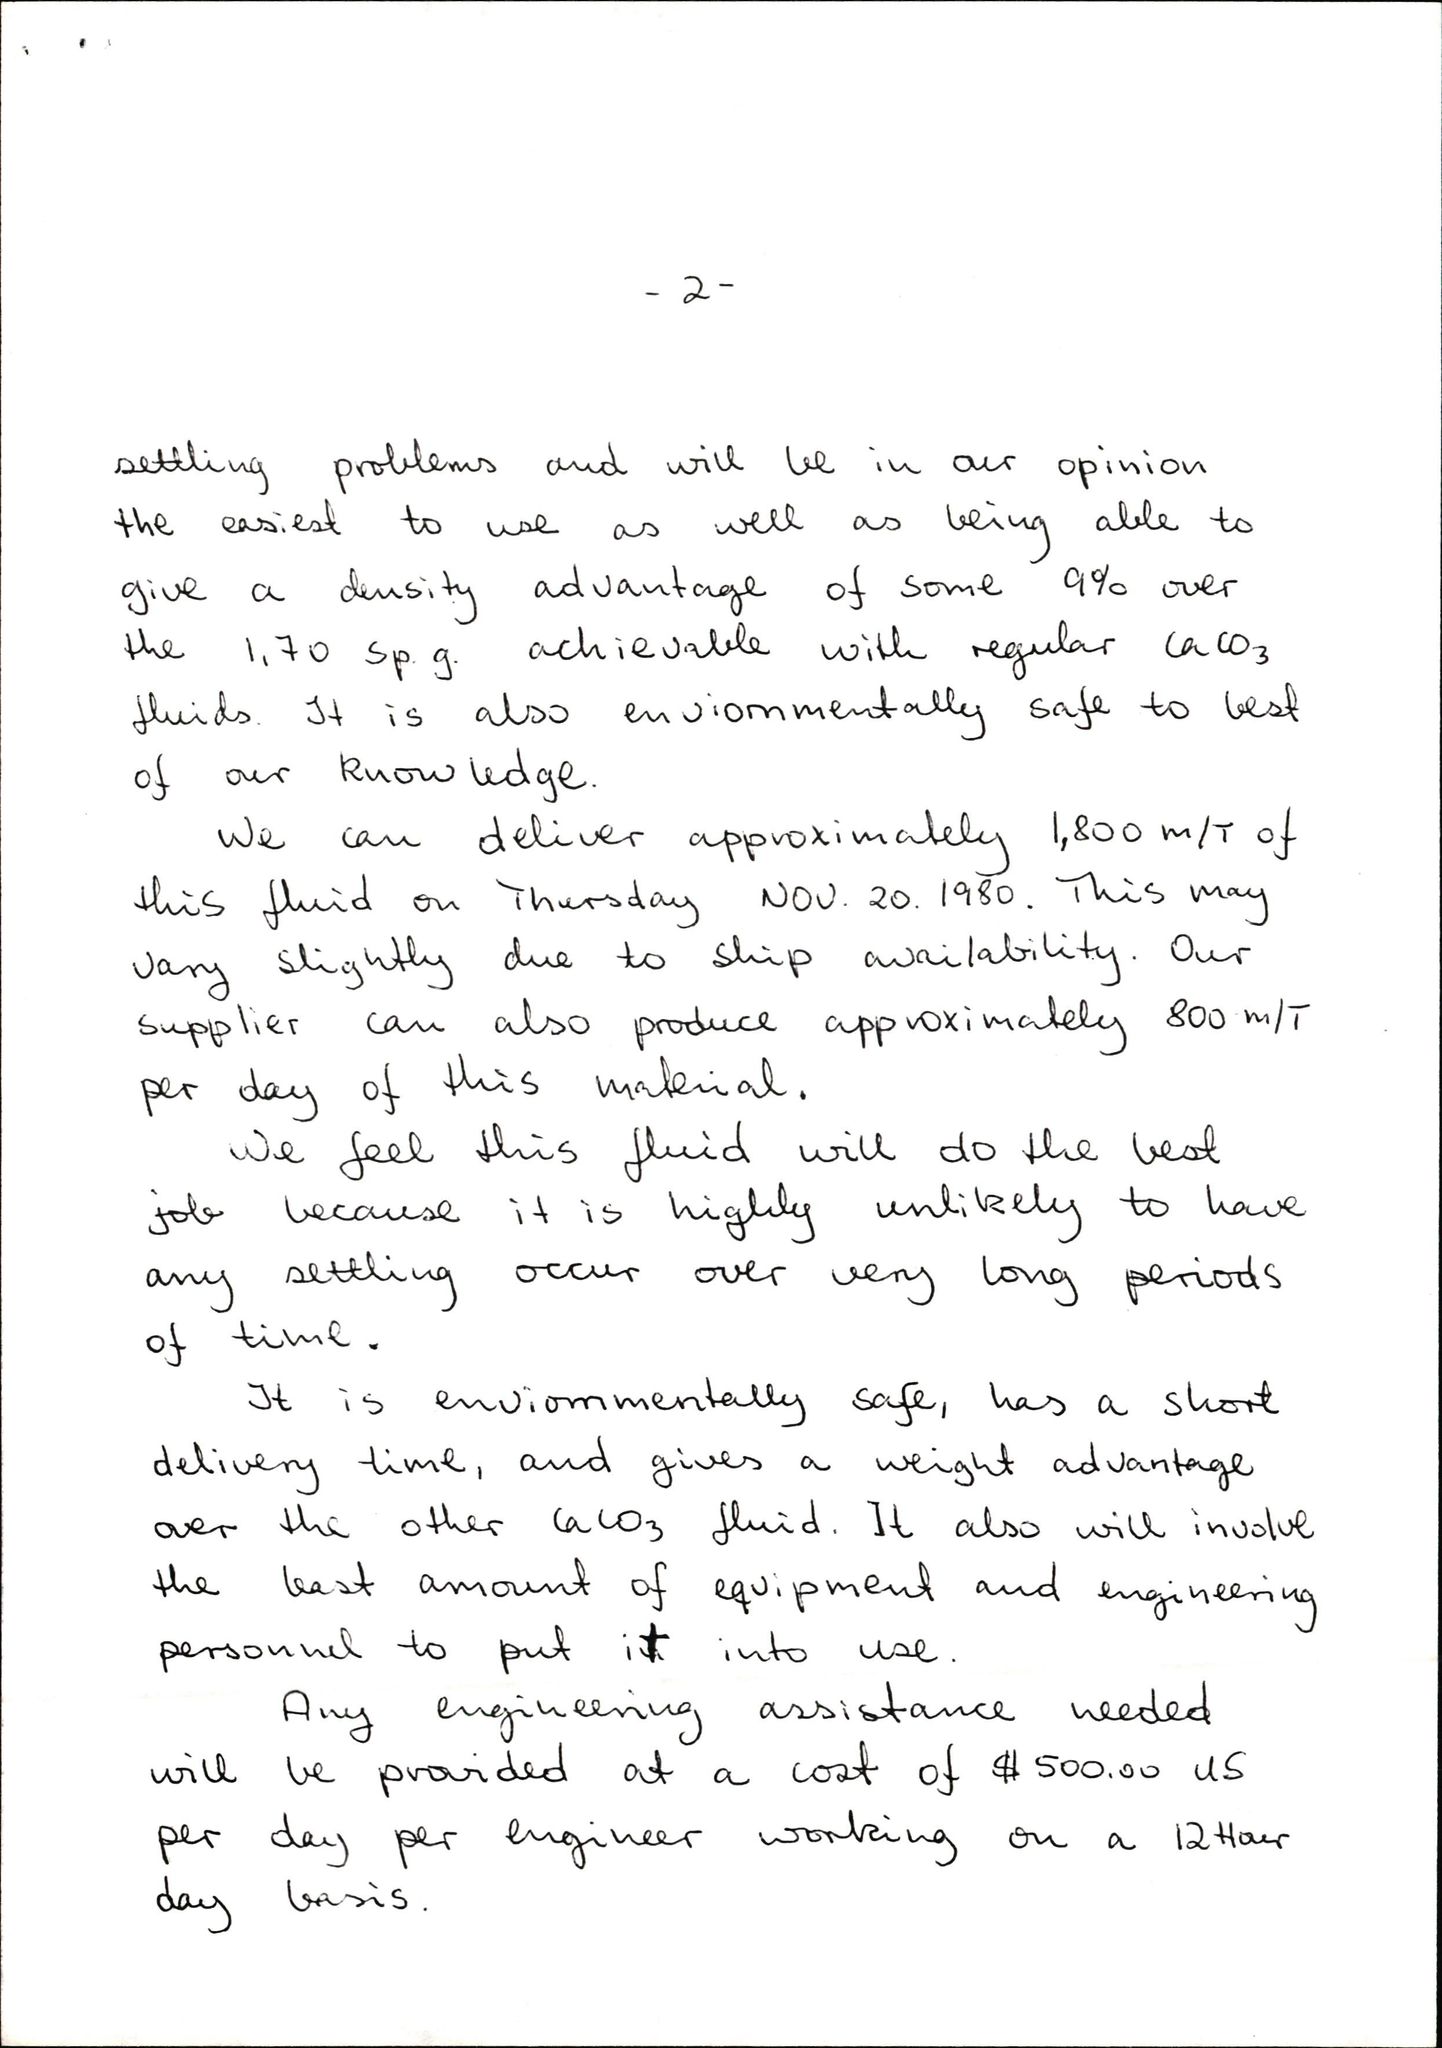 - 2 -
settling problems and will be in our opinion
the easiest to use as well as being able to
give a density advantage of some 9% over
the 1,70 sp. g. achievable with regular CaCO3
fluids. It is also enviornmentally safe to best
of our knowledge.
We can deliver approximately 1,800 m/T of
this fluid on Thursday NOV. 20. 1980. This may
vary slightly due to ship availability. Our
supplier can also produce approximately 800 m/T
per day of this material.
We feel this fluid will do the best
job because it is highly unlikely to have
any settling occur over very long periods
of time.
It is enviornmentally safe, has a short
delivery time, and gives a weight advantage
over the other CaCO3 fluid. It also will involve
the least amount of equipment and engineering
personnel to put it into use.
Any engineering assistance needed
will be provided at a cost of $500.00 US
per day per engineer working on a 12 Hour
day basis.